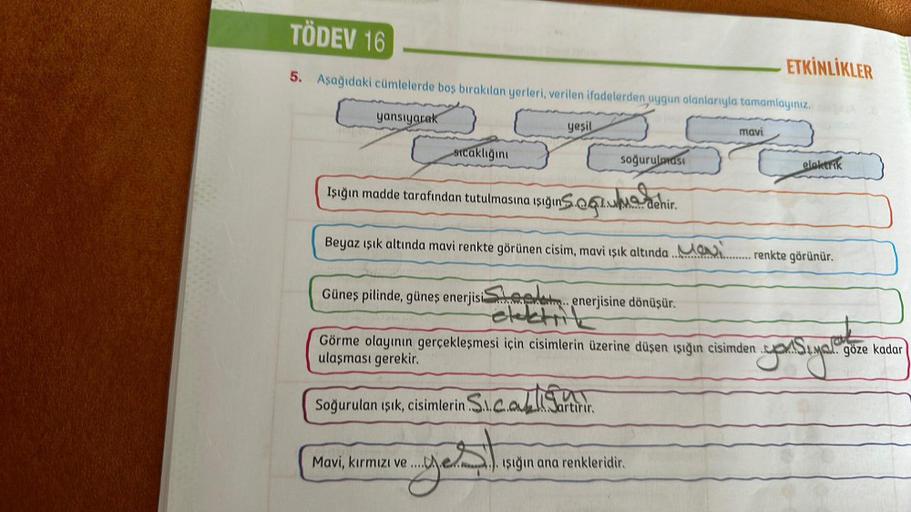 TÖDEV 16
ETKİNLİKLER
5. Aşağıdaki cümlelerde boş bırakılan yerleri, verilen ifadelerden uygun olanlarıyla tamamlayınız.
yansıyarak
yeşil
mavi
sıcaklığını
soğurulması
elektrik
Işığın madde tarafından tutulmasına ışığın denir.
Beyaz ışık altında mavi renkte görünen cisim, mavi ışık altında ..mavi.. renkte görünür.
Güneş pilinde, güneş enerjisi .. enerjisine dönüşür.
elektrik
Görme olayının gerçekleşmesi için cisimlerin üzerine düşen ışığın cisimden yansıyarak göze kadar
ulaşması gerekir.
Soğurulan ışık, cisimlerin sıcaklığını artırır.
Mavi, kırmızı ve ....yeşil.. ışığın ana renkleridir.